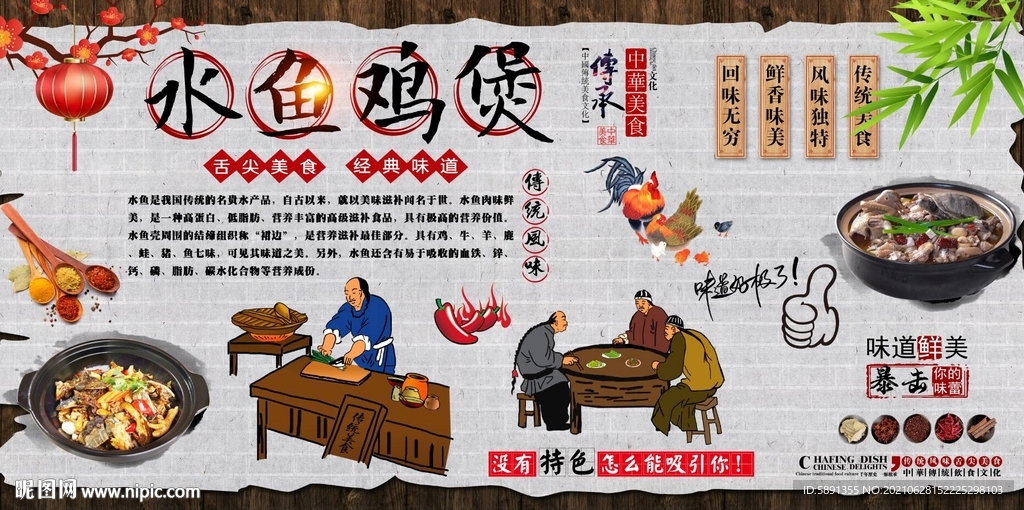 水鱼鸡煲
舌尖美食 经典味道
【中國傳統美食文化】
傳承
中華美食
文化
中華美食
回味无穷
鲜香味美
风味独特
传统美食
水鱼是我国传统的名贵水产品，自古以来，就以美味滋补闻名于世。水鱼肉味鲜
美，是一种高蛋白、低脂肪、营养丰富的高级滋补食品，具有极高的营养价值。
水鱼壳周围的结缔组织称“裙边”，是营养滋补最佳部分。具有鸡、牛、羊、鹿
、蛙、猪、鱼七味，可见其味道之美。另外，水鱼还含有易于吸收的血铁、锌、
钙、磷、脂肪、碳水化合物等营养成份。
傳统風味
味道好极了！
传统美食
味道鲜美
暴击你的味蕾
没有特色怎么能吸引你！
CHAFING DISH
CHINESE DELIGHTS
传统风味舌尖美食
中華傳統飲食文化
昵图网 www.nipic.com
ID:5891355 NO:20210628152225298103